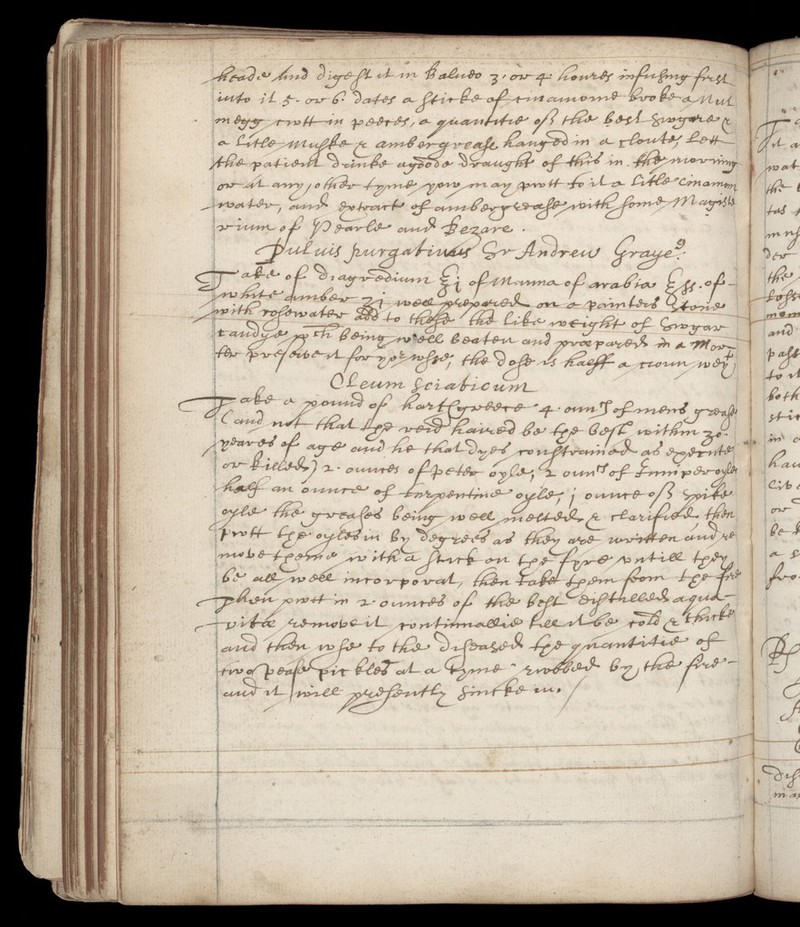 heade And digest it in Balneo 3. or 4 houres infusing first
into it 5. or 6. dates a sticke of cinamome broke a Nut
megg cutt in peeces, a quantitie off the best Swgare &
a litle Muske & ambergrease hanged in a cloute, Lett
the patient drinke agoode draught of this in the morning
or at any other tyme yow may putt to it a litle Cinamon
water, and extract of ambergrease with some Magiste
rium of Pearle and Bezare.
Puluis purgatiuus Sr Andrew Graye
Take of diagredium ℥j of Manna of arabia ℥ss. of
white amber ʒj well prepared on a painters Stone
with rosewater add to these the like weight of Swgar
candye wch being well beaten and prepared in a Mor
ter preserve it for yor wse, the dose is halff a croun wey
Oleum Sciaticum
Take a pound of hartsgreece 4. ounces of mens grease
(and not that the reid haired be the best within 30
yeares of age and he that dyes constrained as execute
or killed) 2. ounces of peter oyle, 2 ounces of Juniper oyle
half an ounce of terpentine oyle, j ounce off Spike
oyle the greases being well melted & clarified, then
putt the oyles in by degrees as they are written and re
move theme with a stick on the fyre untill they
be all well incorporat, then take them from the fire
Then putt in 2. ounces of the best distilled aqua
vitæ remove it continuallie till it be cold & thicke
and then wse to the diseased the quantitie of
two pease pickles at a tyme rwbbed by the fire
and it will presently sincke in.